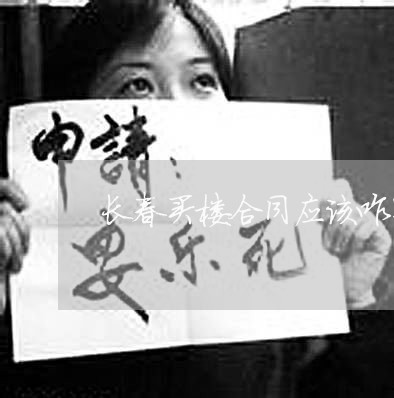 申請：
长春买楼合同应该咋
安乐死